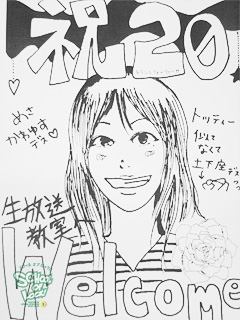 祝20
めさ
かわゆす
デス♡
トッティー
似てなくて
土下座デス
生放送
教室
Welcome
School
of Lock!